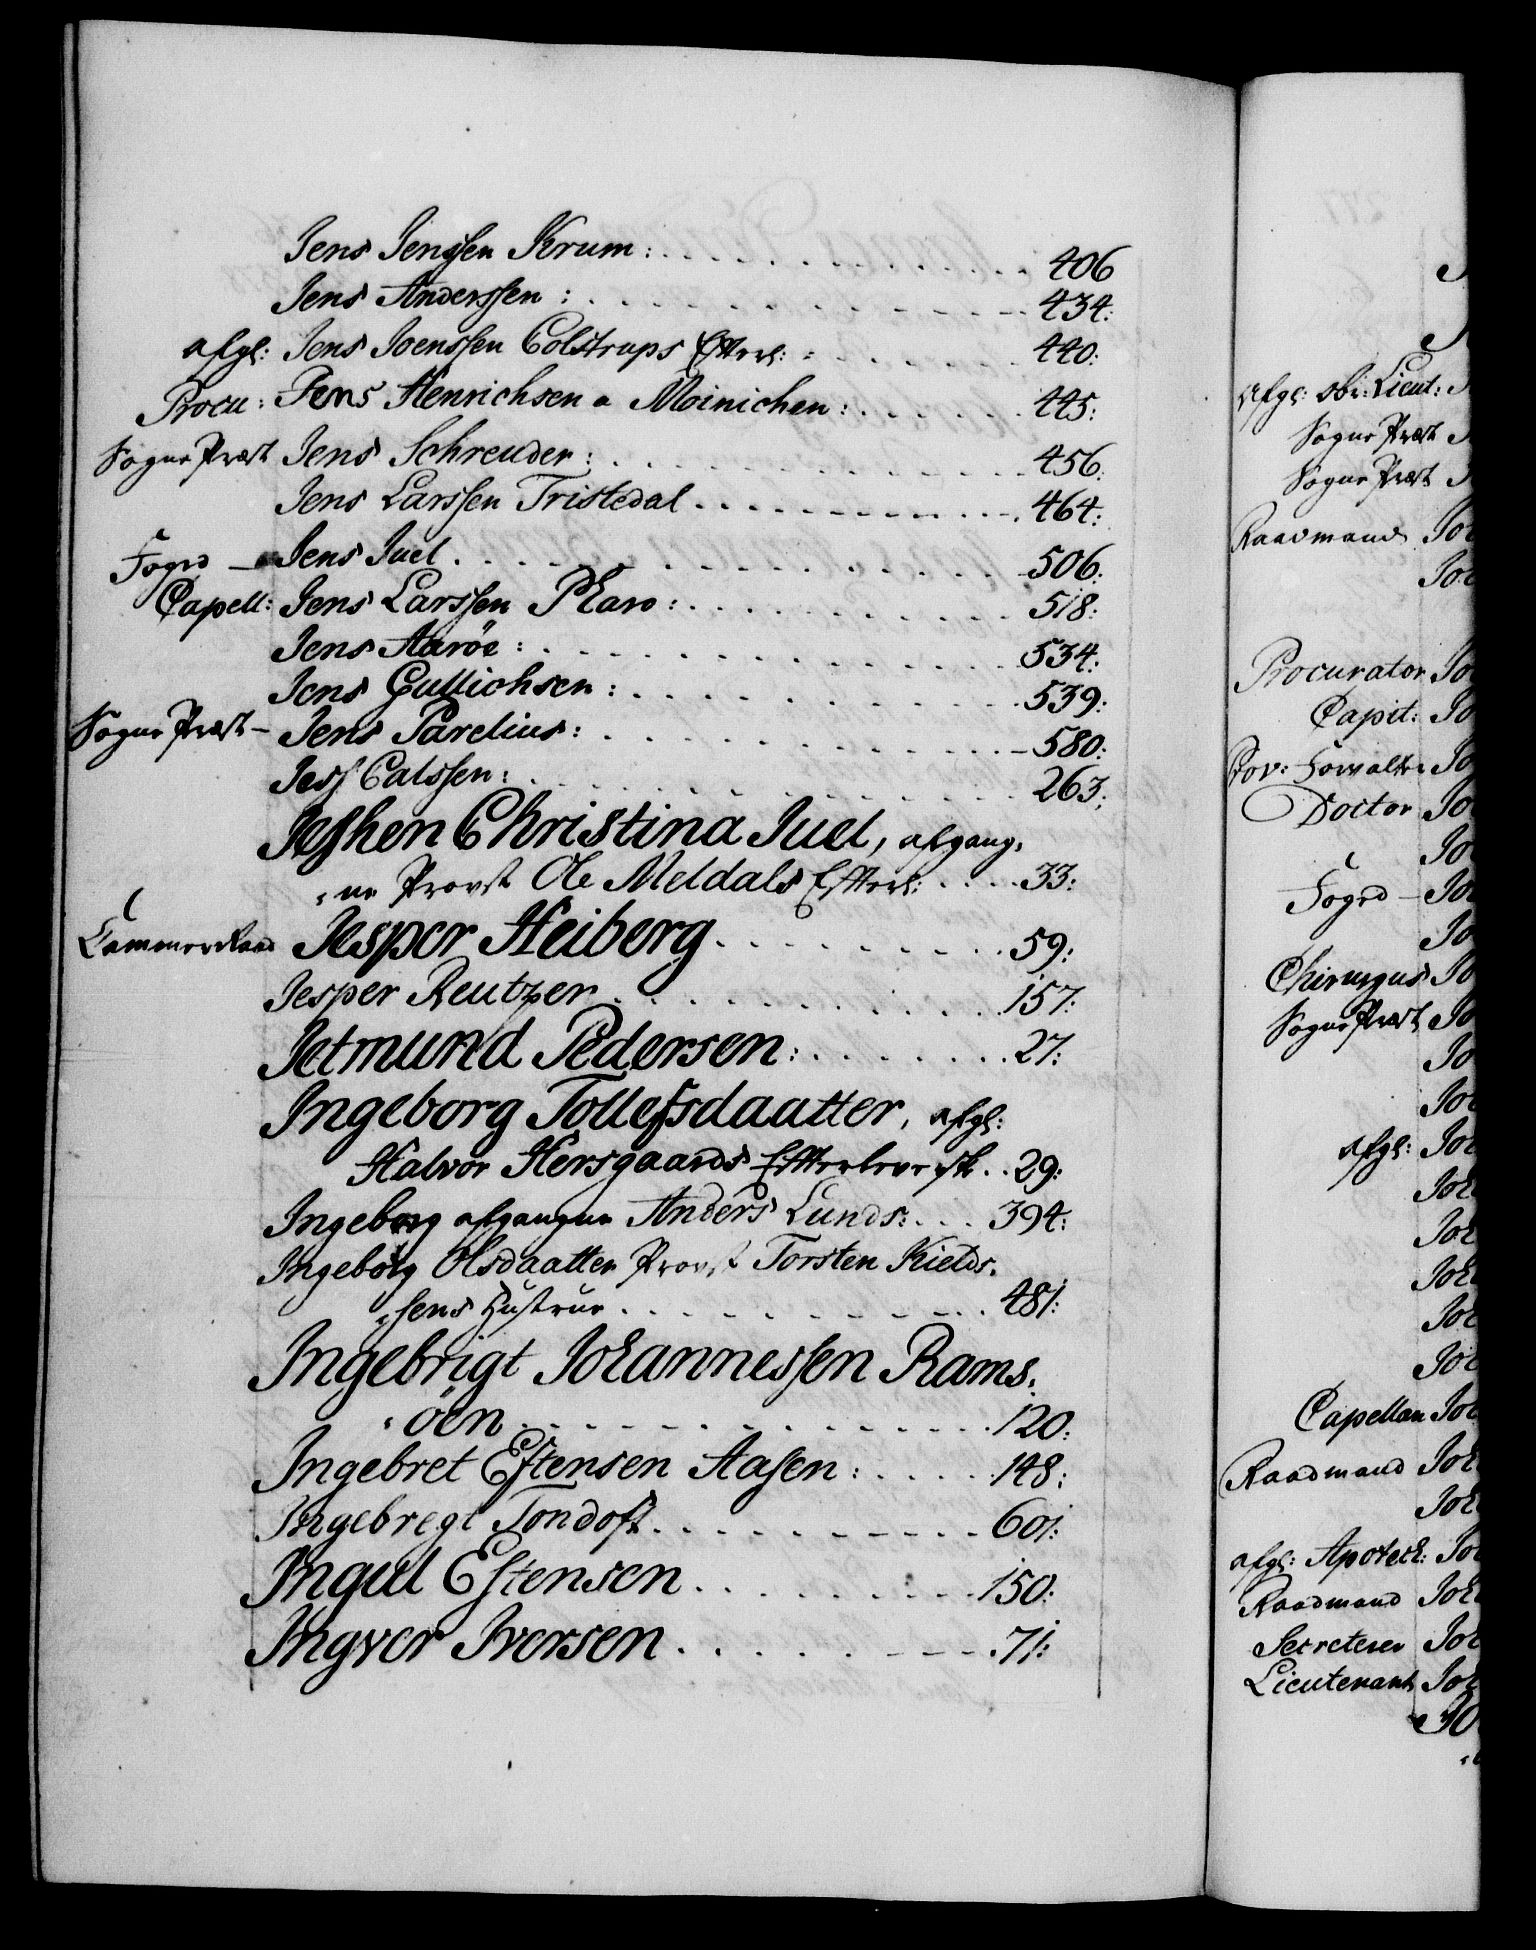 Jens Jenssen Krum: 406
Jens Anderssen: 434:
afgl: Jens Joenssen Colstrups Efterl: 440:
Procu: Jens Henrichsen a Moinichen: 445:
Sogne Præst Jens Schreuder: 456:
Jens Larssen Tristedal 464:
Foged — Jens Juel 506:
Capell: Jens Larssen Pharo: 518:
Jens Aaröe: 534:
Jens Gullichsen: 539:
Sogne Præst — Jens Parelius: 580:
Jess Calssen: 263:
Jeshen Christina Juel, afgang,
ne Provst Ole Meldals Efterl: 33:
Cammerraad Jesper Heiberg 59:
Jesper Reutzer 157:
Jetmund Pedersen: 27:
Ingeborg Tollefsdaatter, afgl:
Halvor Hersgaards Efterleversk 29:
Ingeborg afgangne Anders Lunds: 394:
Ingeborg Olsdaatter Provst Torsten Kields,
sens Hustrue 481:
Ingebrigt Johannessen Rams,
öen 120:
Ingebret Estensen Aasen: 148:
Ingebregt Tondoft 601:
Ingul Estensen 150:
Ingver Iversen 71:
afgl: Lieut:
Sogne Præst
Sogne Præst
Raadmand
Procurator
Capit:
Prov: Forvalter
Doctor
Foged —
Chirurgus
Sogne Præst
afgl:
Capellan
Raadmand
afgl: Apoteck:
Raadmand
Secreterer
Lieutenant